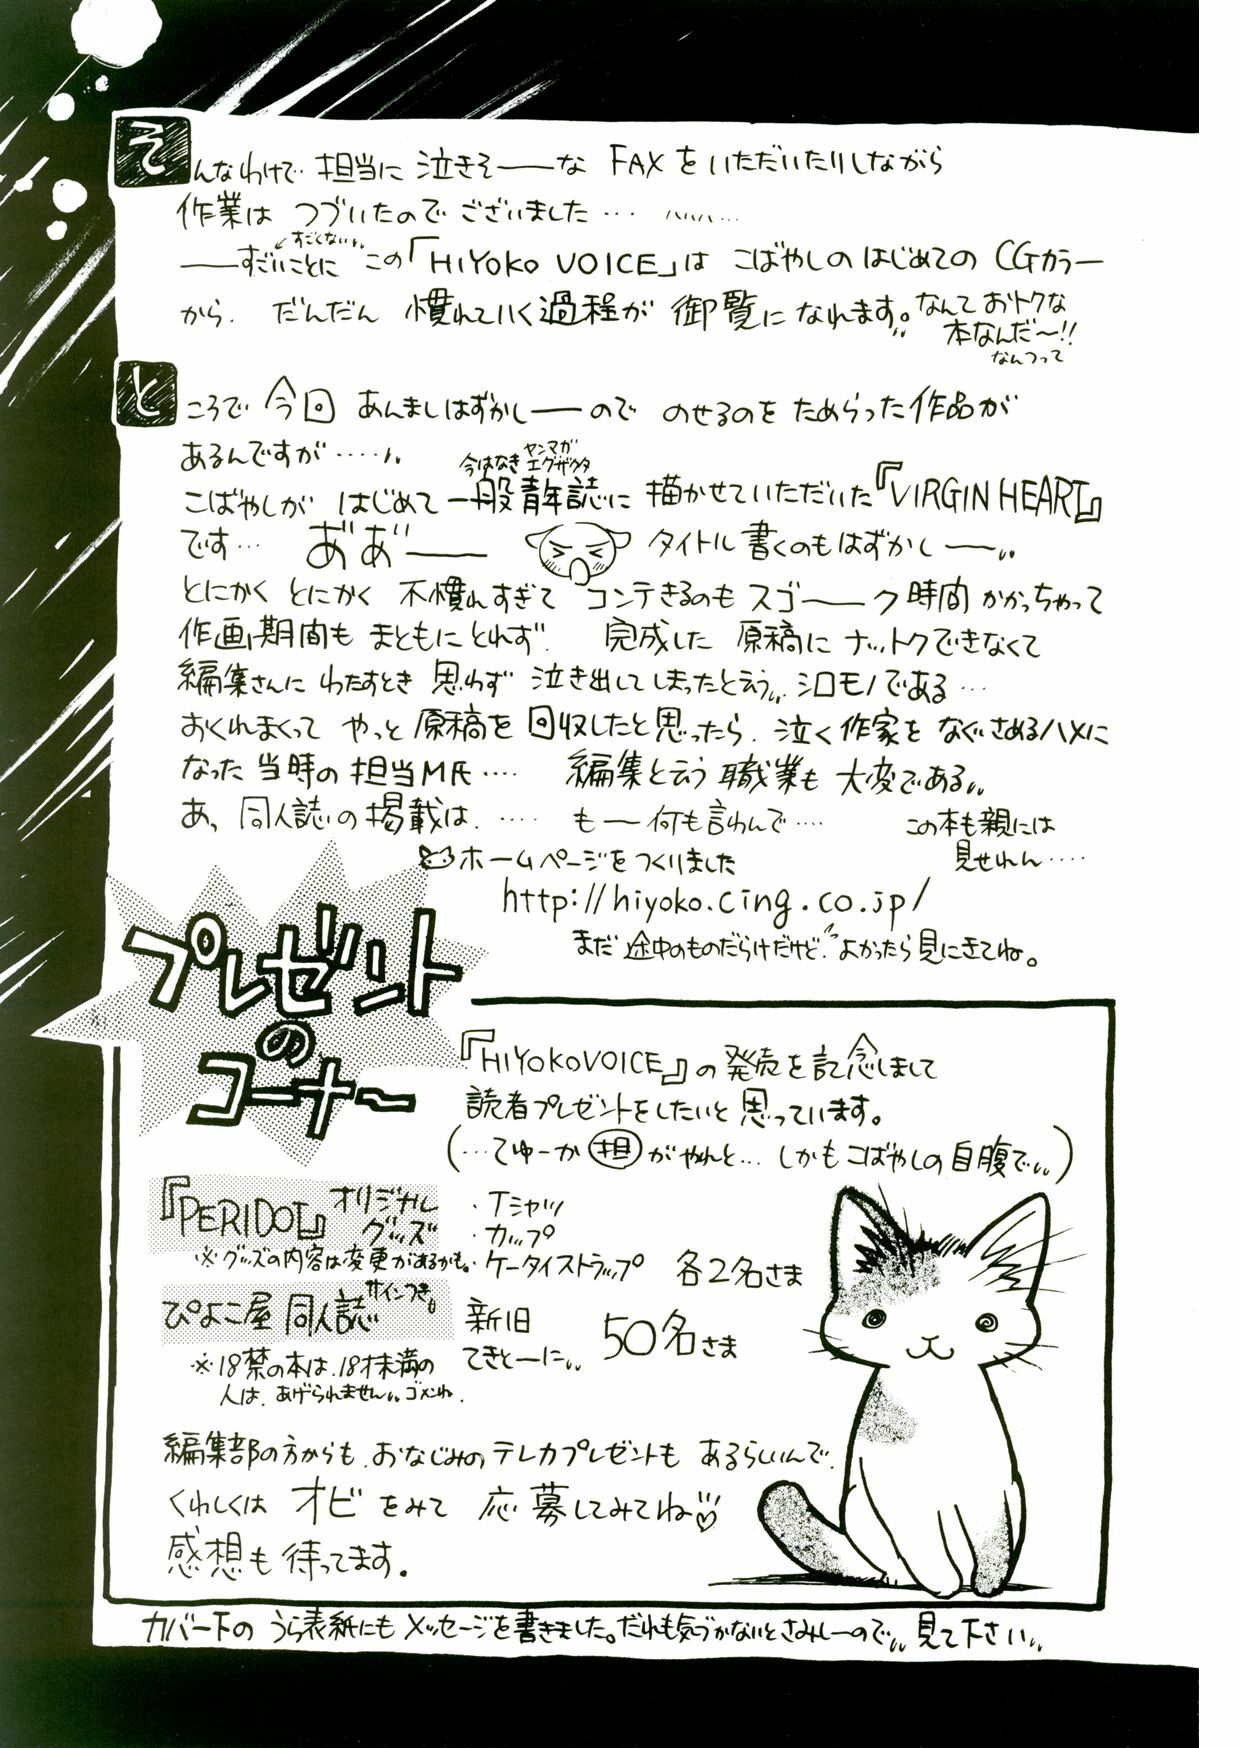 そんなわけで 担当に 泣きそーーな FAXをいただいたりしながら
作業は つづいたのでございました‥‥ ‥‥
すごくない
——すごいことに この「HIYOKO VOICE」は こばやしの はじめての CGカラー
から、だんだん 慣れていく過程が 御覧になれます。なんて おトクな
本なんだ〜!!
なんつって
ところで 今回 あんましはずかしーーので のせるのを ためらった作品が
あるんですが‥‥‥
今はなき ヤンマガ
エグザクタ
こばやしが はじめて 一般青年誌に 描かせていただいた『VIRGIN HEART』
です‥‥ あ゛あ゛—— タイトル書くのもはずかしーー
とにかく とにかく 不慣れすぎて コンテきるのも スゴーーク 時間かかっちゃって
作画期間も まともに とれず、 完成した 原稿に ナットクできなくて
編集さんに わたすとき 思わず 泣き出してしまったと云う シロモノである‥‥
おくれまくって やっと 原稿を 回収したと思ったら、泣く作家を なぐさめるハメに
なった 当時の 担当M氏‥‥ 編集と云う 職業も 大変である
あ、同人誌の掲載は、‥‥‥ もー何も言わんで‥‥ この本も親には
見せれん‥‥
ホームページをつくりました
http://hiyoko.cing.co.jp/
まだ 途中のものだらけだけど よかったら見にきてね。
プレゼント
の
コーナー
『HIYOKOVOICE』の発売を記念しまして
読者プレゼントをしたいと思っています。
(‥‥てゆーか 担 がやれと‥‥ しかもこばやしの自腹で)
『PERIDOT』オリジナル
グッズ
※グッズの内容は変更があるかも。
・Tシャツ
・カップ
・ケータイストラップ 各2名さま
ぴよこ屋 同人誌 サインつき。
新旧
てきとーに 50名さま
※18禁の本は、18才未満の
人は、あげられません ゴメンね.
編集部の方からも、おなじみのテレカプレゼントも あるらしいんで、
くわしくは オビをみて 応募してみてね♡
感想も待ってます。
カバー下の うら表紙にもメッセージを書きました。だれも気づかないとさみしーので 見て下さい